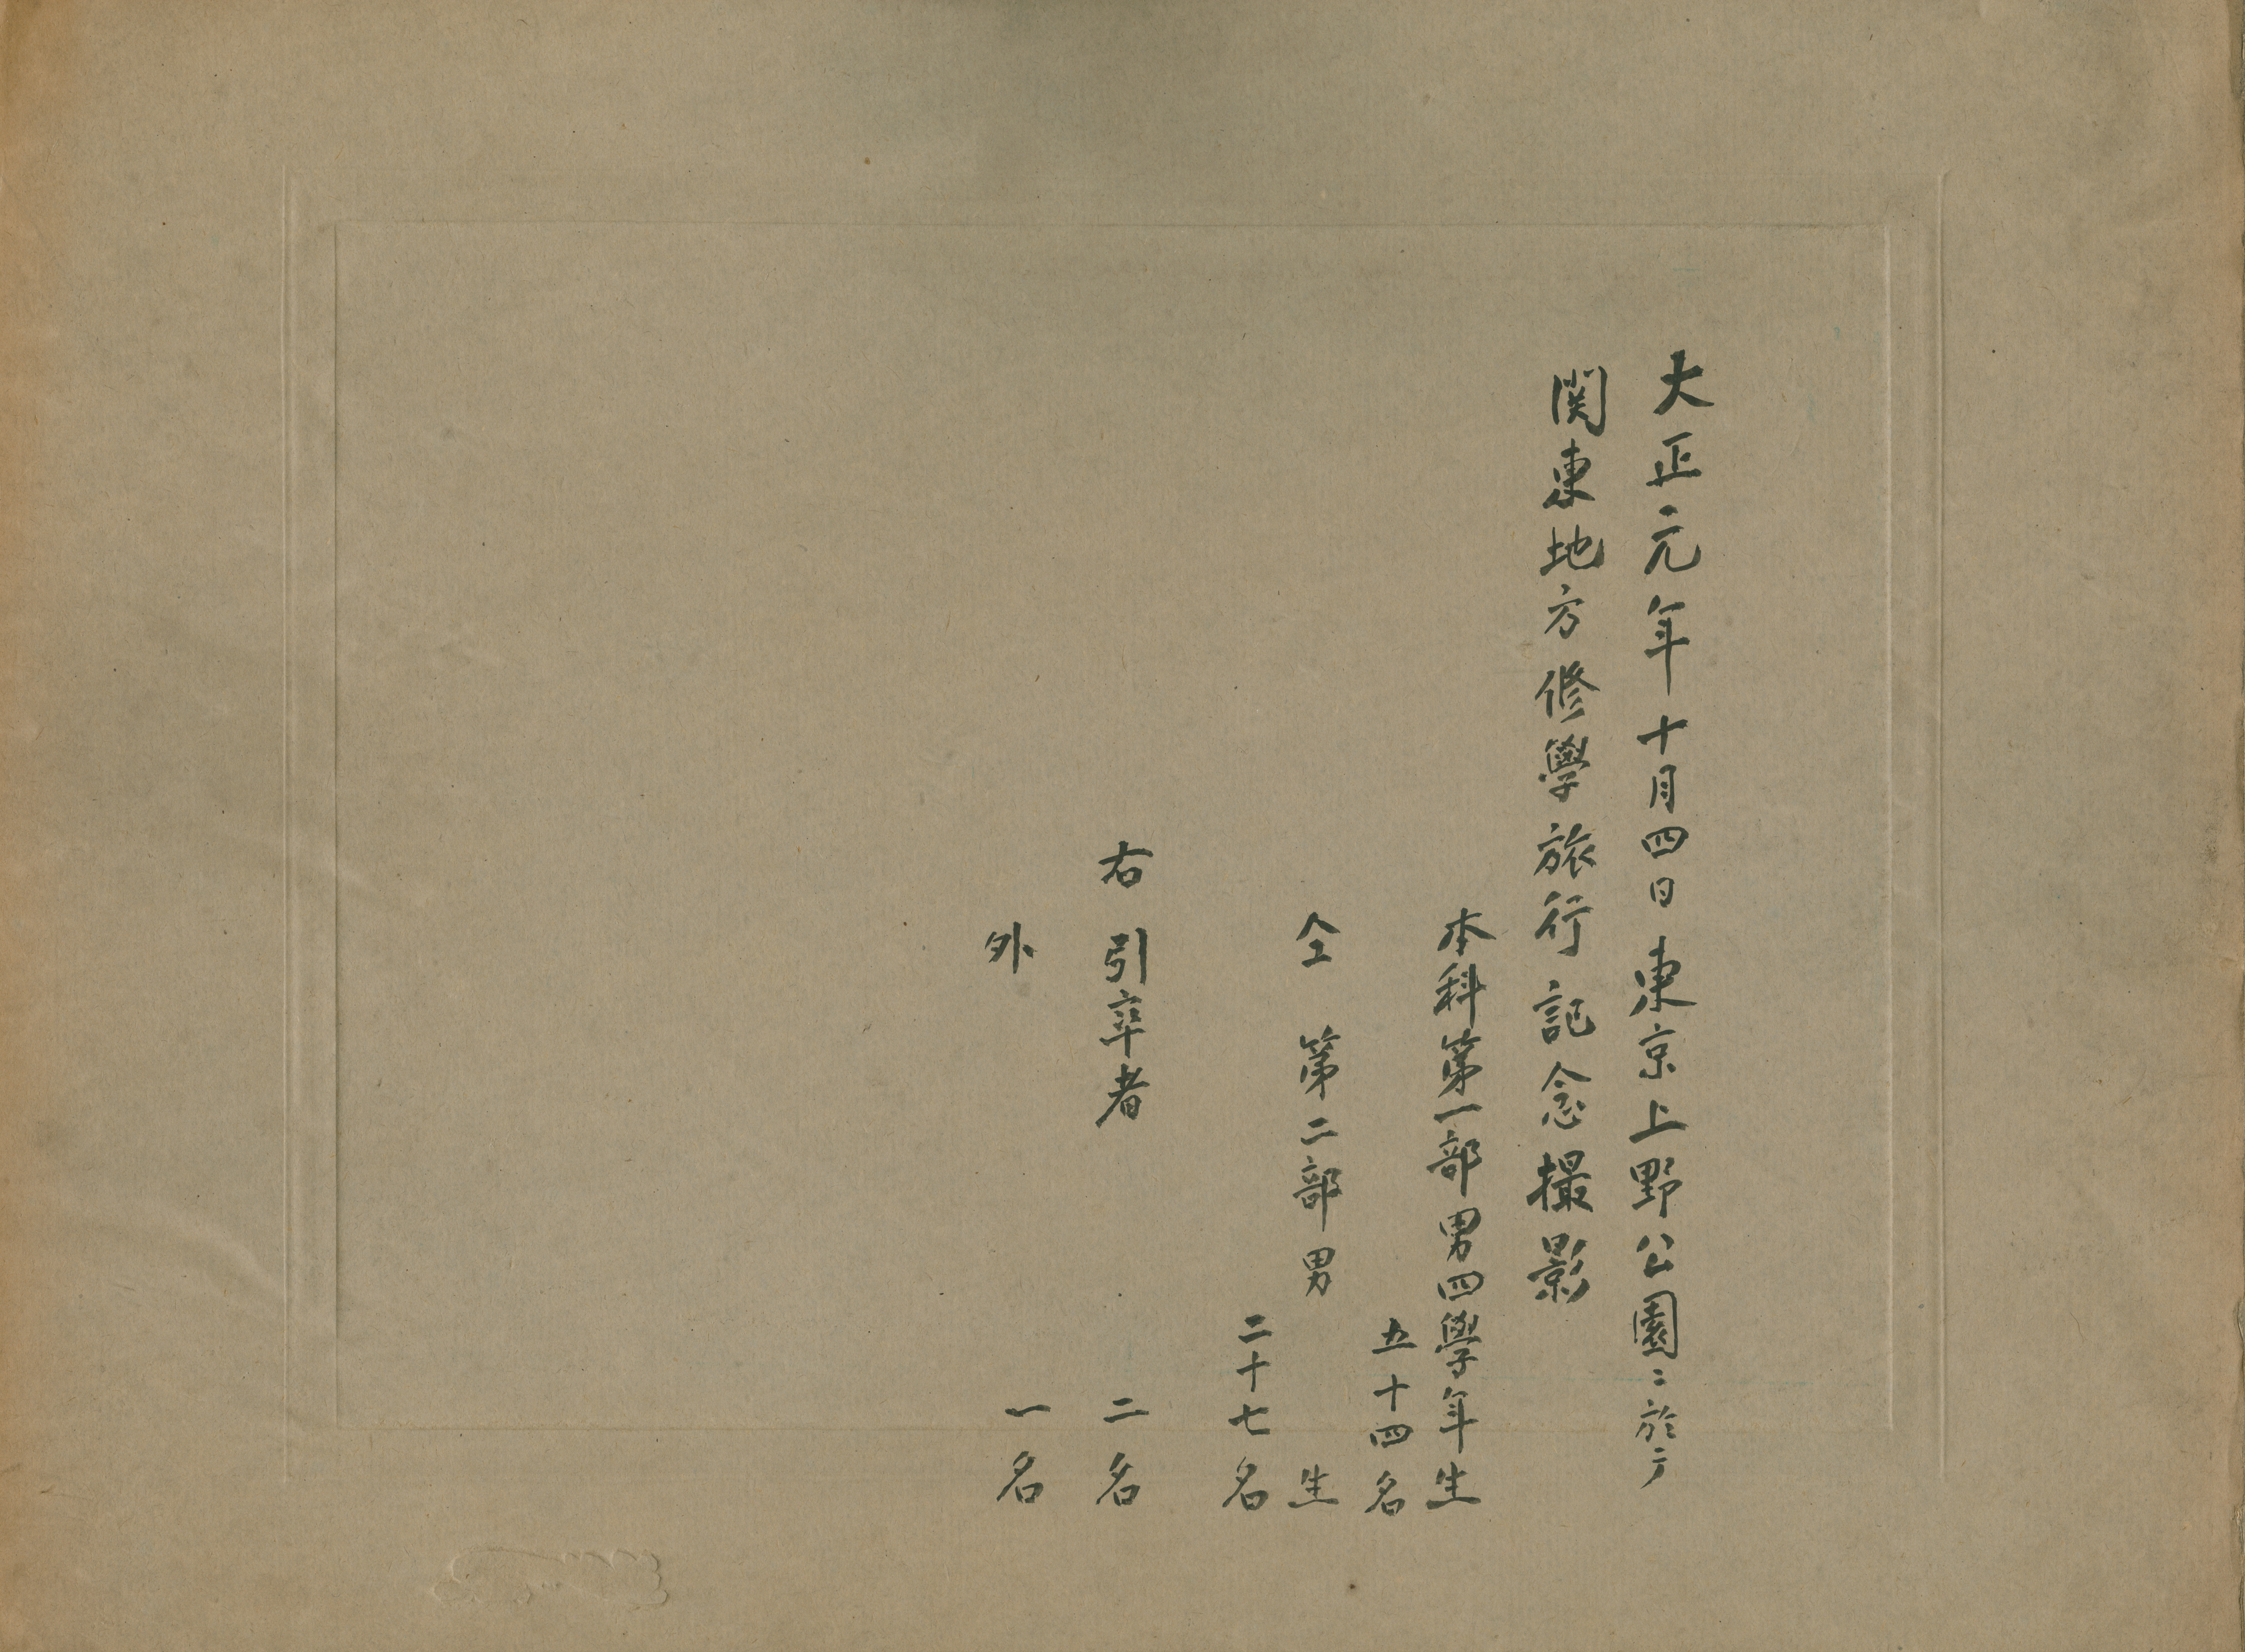 大正元年十月四日東京上野公園ニ於テ
関東地方修學旅行記念撮影
本科第一部男四學年生
五十四名
仝 第二部男 生
二十七名
右引率者 二名
外 一名